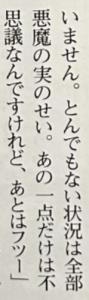 いません。とんでもない状況は全部
悪魔の実のせい。あの一点だけは不
思議なんですけれど、あとはフツー」